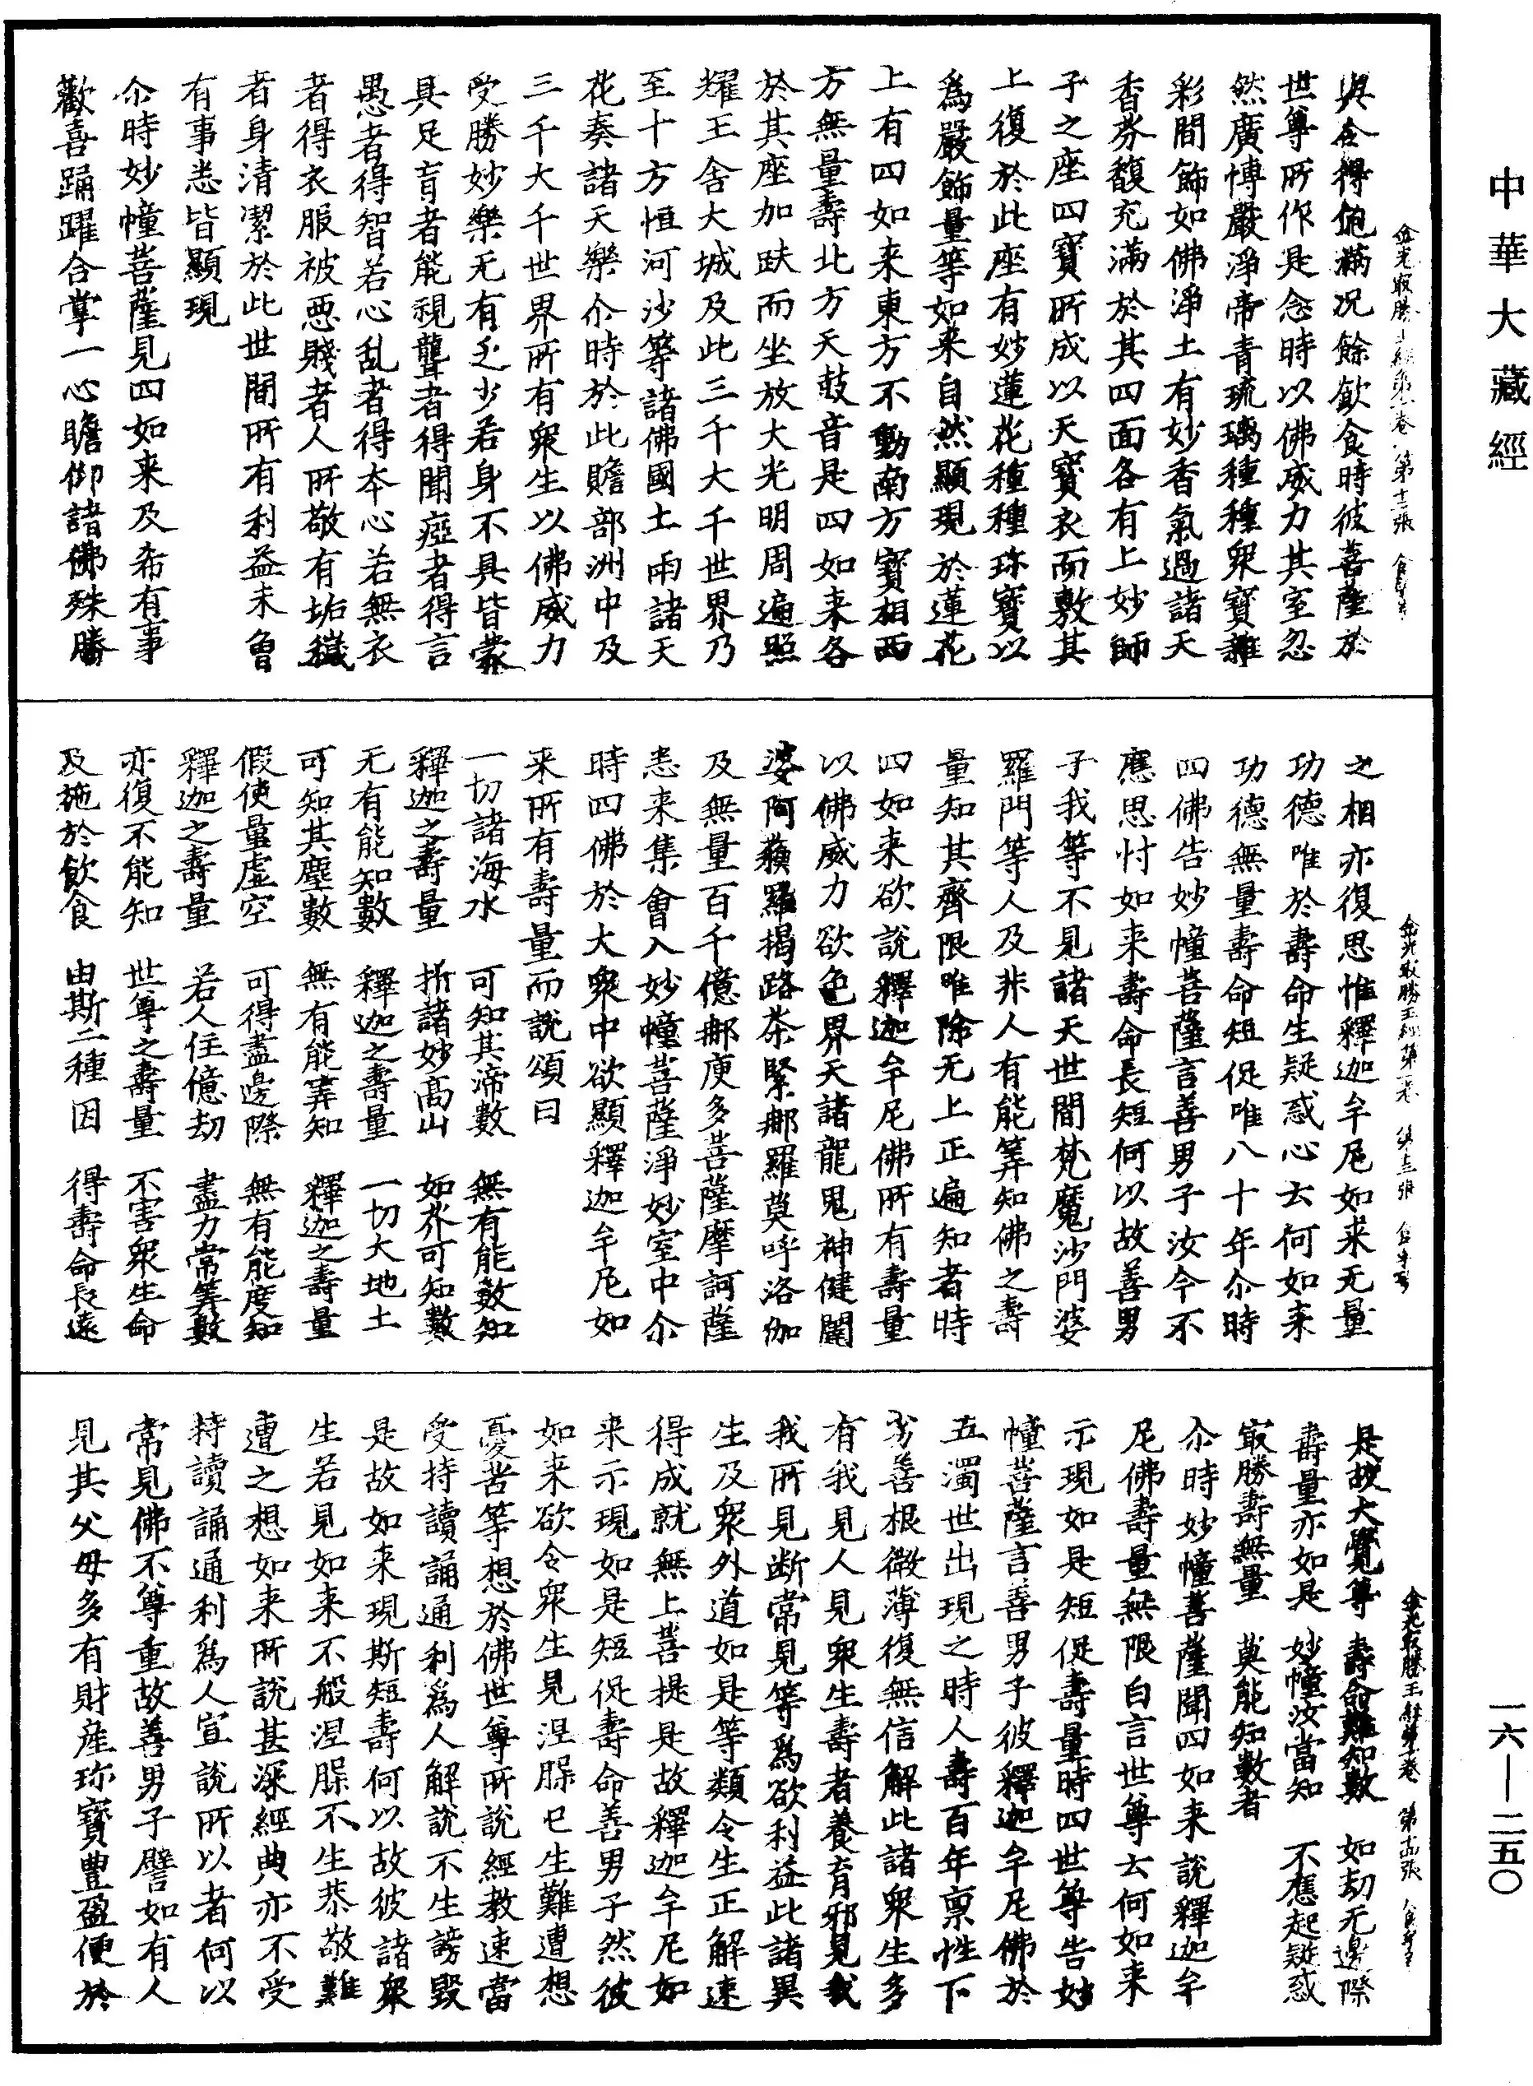 中華大藏經
金光最勝王經第一卷 第十二張 食字号
與令得飽滿况餘飲食時彼菩薩於
世尊所作是念時以佛威力其室忽
然廣博嚴淨帝青琉璃種種衆寶雜
彩間飾如佛淨土有妙香氣過諸天
香芬馥充滿於其四面各有上妙師
子之座四寶所成以天寶衣而敷其
上復於此座有妙蓮花種種珎寶以
為嚴飾量等如来自然顯現於蓮花
上有四如来東方不動南方寶相西
方無量壽北方天鼓音是四如来各
於其座加趺而坐放大光明周遍照
耀王舍大城及此三千大千世界乃
至十方恒河沙等諸佛國土雨諸天
花奏諸天樂尒時於此贍部洲中及
三千大千世界所有衆生以佛威力
受勝妙樂无有乏少若身不具皆蒙
具足盲者能視聾者得聞瘂者得言
愚者得智若心乱者得本心若無衣
者得衣服被惡賤者人所敬有垢穢
者身清潔於此世間所有利益未曾
有事悉皆顯現
尒時妙幢菩薩見四如来及希有事
歡喜踊躍合掌一心瞻仰諸佛殊勝
金光最勝王經第一卷 第十三張 食字号
之相亦復思惟釋迦牟尼如来无量
功德唯於壽命生疑惑心云何如来
功德無量壽命短促唯八十年尒時
四佛告妙幢菩薩言善男子汝今不
應思忖如来壽命長短何以故善男
子我等不見諸天世間梵魔沙門婆
羅門等人及非人有能筭知佛之壽
量知其齊限唯除无上正遍知者時
四如来欲說釋迦牟尼佛所有壽量
以佛威力欲色界天諸龍鬼神健闥
婆阿蘇羅揭路荼緊那羅莫呼洛伽
及無量百千億那庾多菩薩摩訶薩
悉来集會入妙幢菩薩淨妙室中尒
時四佛於大衆中欲顯釋迦牟尼如
来所有壽量而說頌曰
一切諸海水 可知其渧數 無有能數知
釋迦之壽量 折諸妙高山 如芥可知數
无有能知數 釋迦之壽量 一切大地土
可知其塵數 無有能筭知 釋迦之壽量
假使量虛空 可得盡邊際 無有能度知
釋迦之壽量 若人住億劫 盡力常筭數
亦復不能知 世尊之壽量 不害衆生命
及施於飲食 由斯二種因 得壽命長遠
金光最勝王經第一卷 第十四張 食字号
是故大覺尊 壽命難知數 如劫无邊際
壽量亦如是 妙幢汝當知 不應起疑惑
最勝壽無量 莫能知數者
尒時妙幢菩薩聞四如来說釋迦牟
尼佛壽量無限白言世尊云何如来
示現如是短促壽量時四世尊告妙
幢菩薩言善男子彼釋迦牟尼佛於
五濁世出現之時人壽百年稟性下
劣善根微薄復無信解此諸衆生多
有我見人見衆生壽者養育邪見我
我所見断常見等為欲利益此諸異
生及衆外道如是等類令生正解速
得成就無上菩提是故釋迦牟尼如
来示現如是短促壽命善男子然彼
如来欲令衆生見涅槃已生難遭想
憂苦等想於佛世尊所說經教速當
受持讀誦通利為人解說不生謗毀
是故如来現斯短壽何以故彼諸衆
生若見如来不般涅槃不生恭敬難
遭之想如来所說甚深經典亦不受
持讀誦通利為人宣說所以者何以
常見佛不尊重故善男子譬如有人
見其父母多有財產珎寶豐盈便於
一六—二五〇